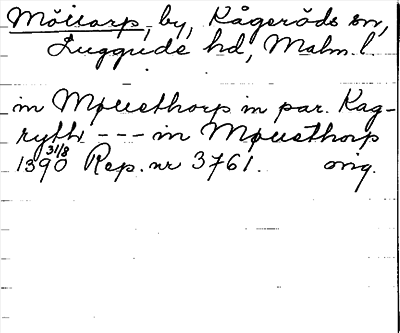 Möllarp, by, Kågeröds sn,
Luggude hd, Malm. l.
in Møllethorp in par. Kag-
ryth --- in Møllethorp
1390 31/8 Rep. nr 3761. orig.